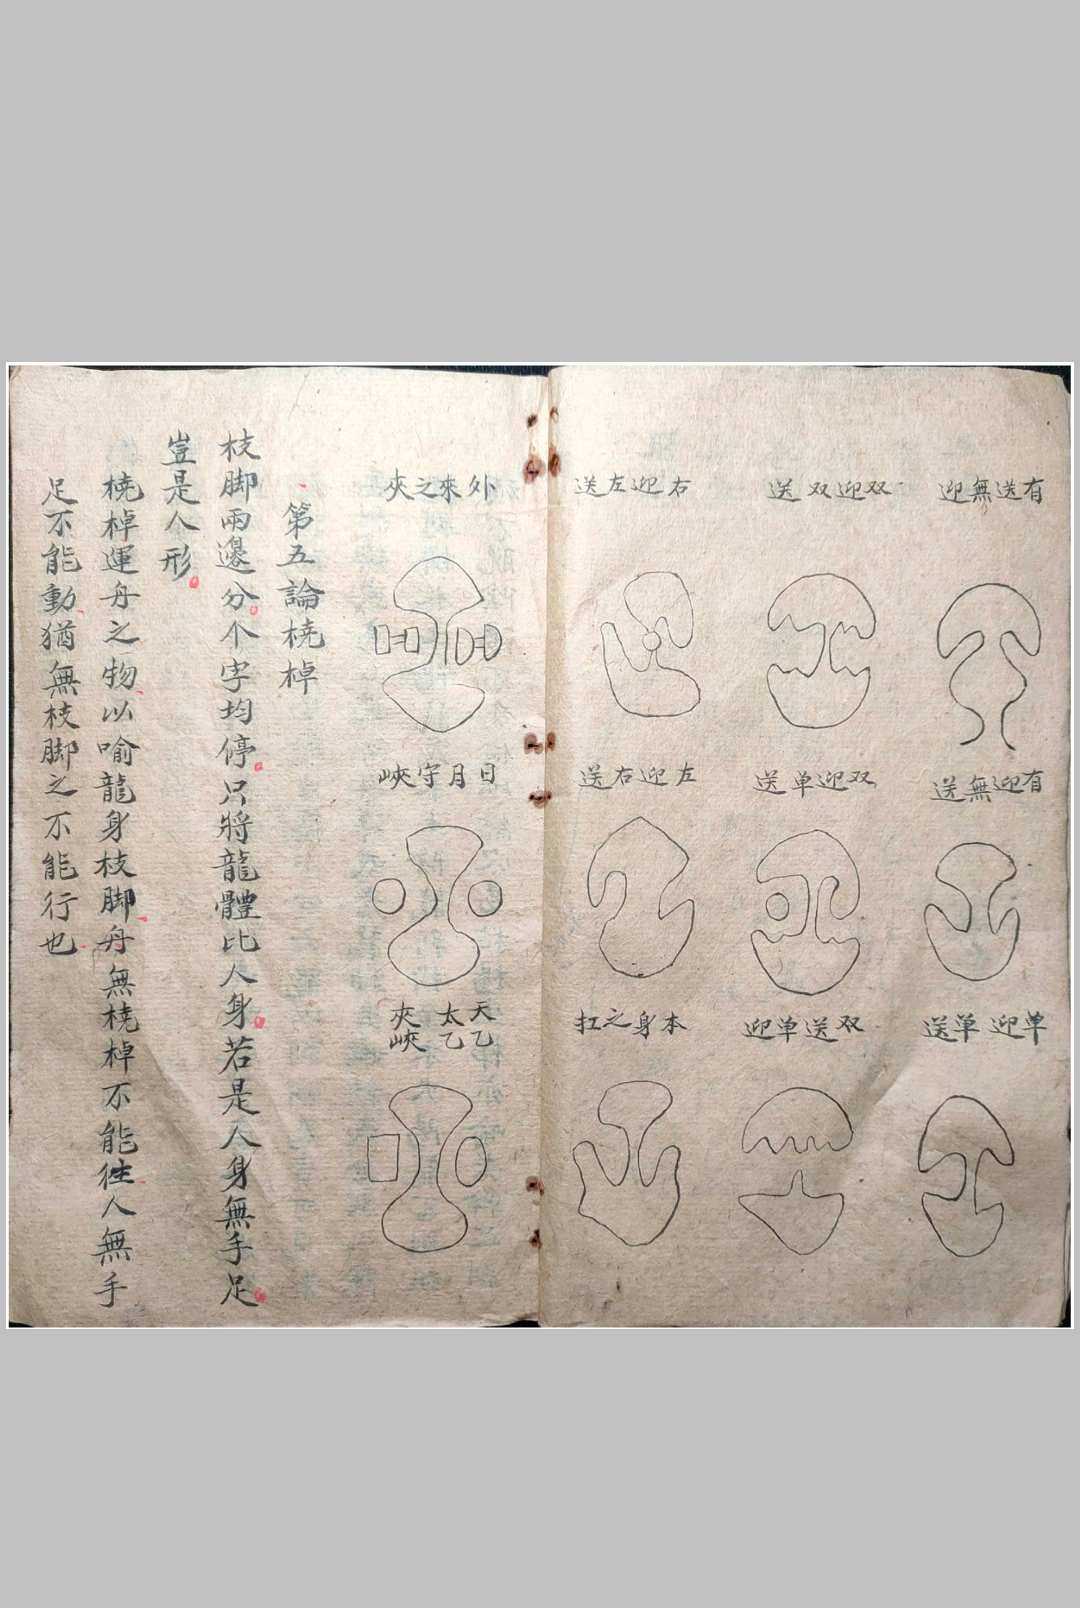 有送無迎
有迎無送
单迎单送
双迎双送
双迎单送
双送单迎
右迎左送
左迎右送
本身之扛
外來之夾
日月守峽
天乙
太乙
夾峽
第五論橈棹
枝脚兩邊分个字均停只將龍體比人身若是人身無手足
豈是人形
橈棹運舟之物以喻龍身枝脚舟無橈棹不能徃人無手
足不能動猶無枝脚之不能行也